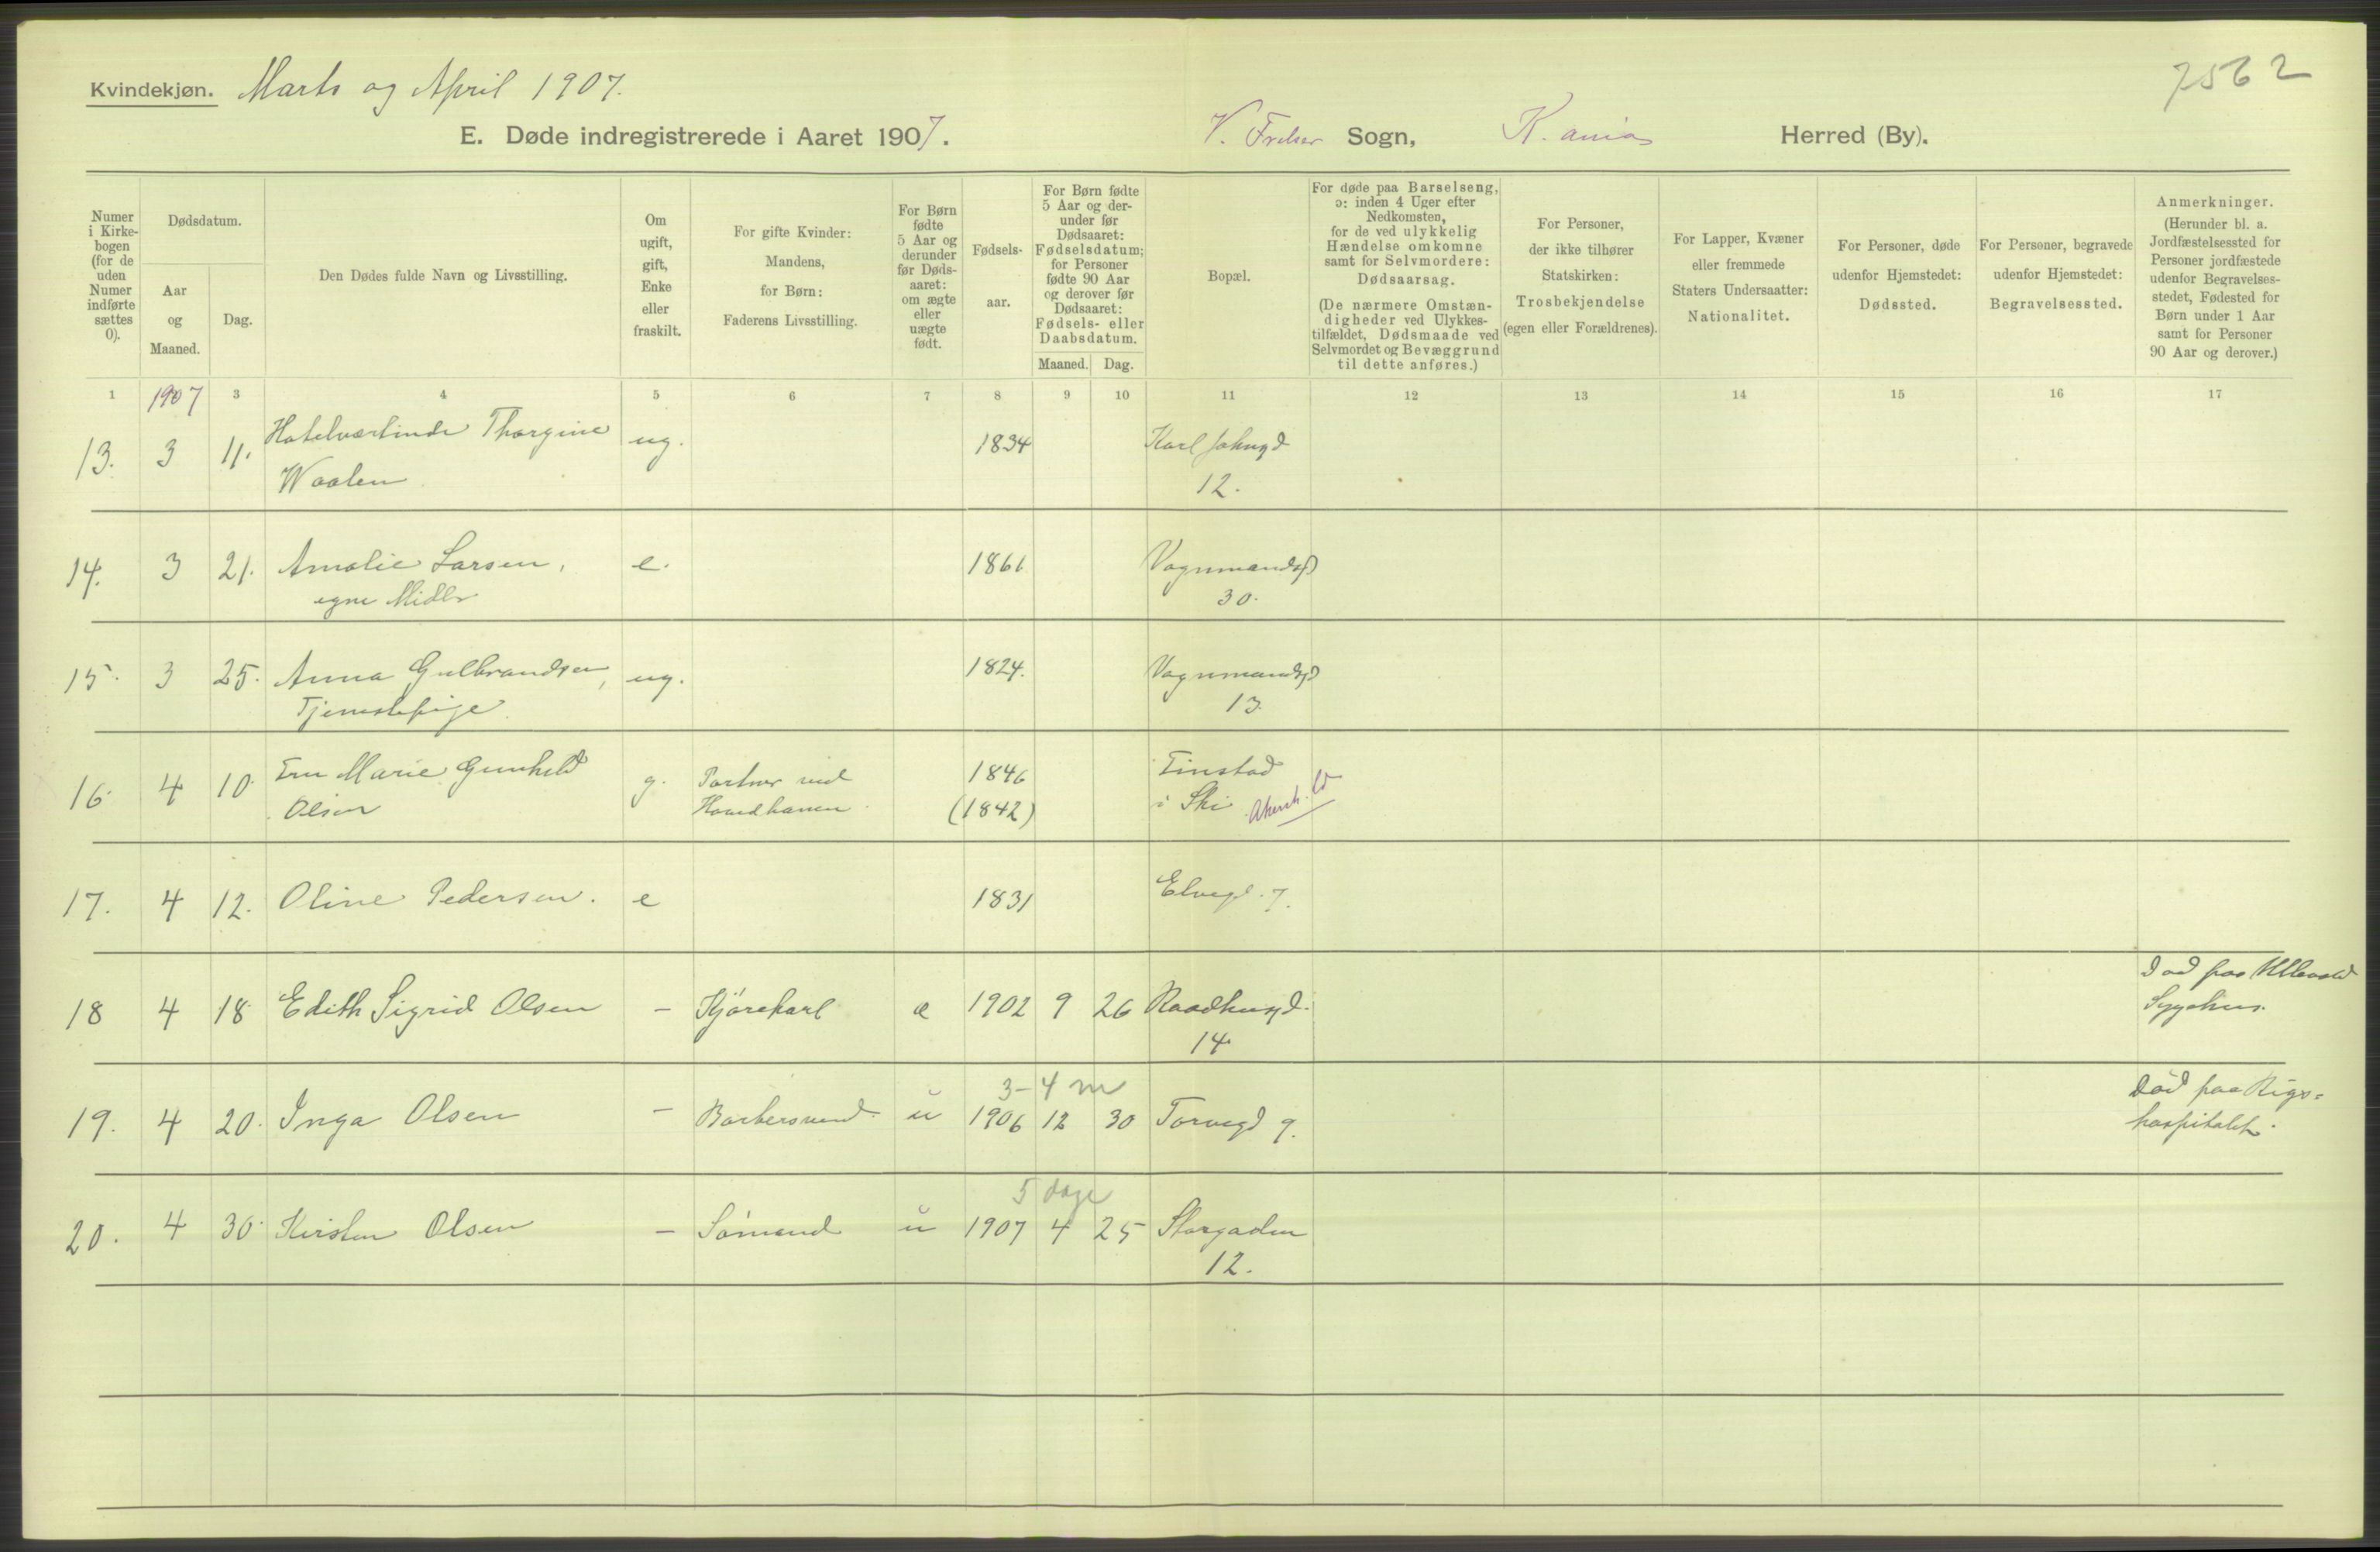 Kvindekjøn. Marts og April 1907.
7562
E. Døde indregistrerede i Aaret 1907. V. Frelser Sogn, K.ania Herred (By).
Numer i Kirkebogen (for de uden Numer indførte sættes 0).
Dødsdatum.
Aar og Maaned.
Dag.
Den Dødes fulde Navn og Livsstilling.
Om ugift, gift, Enke eller fraskilt.
For gifte Kvinder: Mandens, for Børn: Faderens Livsstilling.
For Børn fødte 5 Aar og derunder før Dødsaaret: om ægte eller uægte født.
Fødselsaar.
For Børn fødte 5 Aar og derunder før Dødsaaret: Fødselsdatum; for Personer fødte 90 Aar og derover før Dødsaaret: Fødsels- eller Daabsdatum.
Maaned. Dag.
Bopæl.
For døde paa Barselseng, ɔ: inden 4 Uger efter Nedkomsten, for de ved ulykkelig Hændelse omkomne samt for Selvmordere: Dødsaarsag.
(De nærmere Omstændigheder ved Ulykkestilfældet, Dødsmaade ved Selvmordet og Bevæggrund til dette anføres.)
For Personer, der ikke tilhører Statskirken: Trosbekjendelse (egen eller Forældrenes).
For Lapper, Kvæner eller fremmede Staters Undersaatter: Nationalitet.
For Personer, døde udenfor Hjemstedet: Dødssted.
For Personer, begravede udenfor Hjemstedet: Begravelsessted.
Anmerkninger.
(Herunder bl. a. Jordfæstelsessted for Personer jordfæstede udenfor Begravelsesstedet, Fødested for Børn under 1 Aar samt for Personer 90 Aar og derover.)
1 1907 3 4 5 6 7 8 9 10 11 12 13 14 15 16 17
13. 3 11. Hotelværtinde Thorgine ug. 1834 Karl Johngd
Waalen 12.
14. 3 21. Amalie Larsen, e. 1861 Vognmandsgd
egne Midler 30.
15. 3 25. Anna Gulbrandsen, ug. 1824. Vognmandsgd
Tjenestepige 13
16. 4 10. Fru Marie Gunhild g. Portner ved 1846 Finstad
Olsen Hovedhaven (1842) i Ski Akersh.
17. 4 12. Oline Pedersen. e 1831 Elvegd. 7.
18 4 18 Edith Sigrid Olsen — Kjørekarl æ 1902 9 26 Raadhusgd. Død paa Ullevold
14 Sygehus.
3-4 m
19. 4 20. Inga Olsen — Barbersvend u 1906 12 30 Torvegd 9. Død paa Rigs=
hospitalet.
5 dage
20. 4 30 Kirsten Olsen — Sömand u 1907 4 25 Storgaden
12.